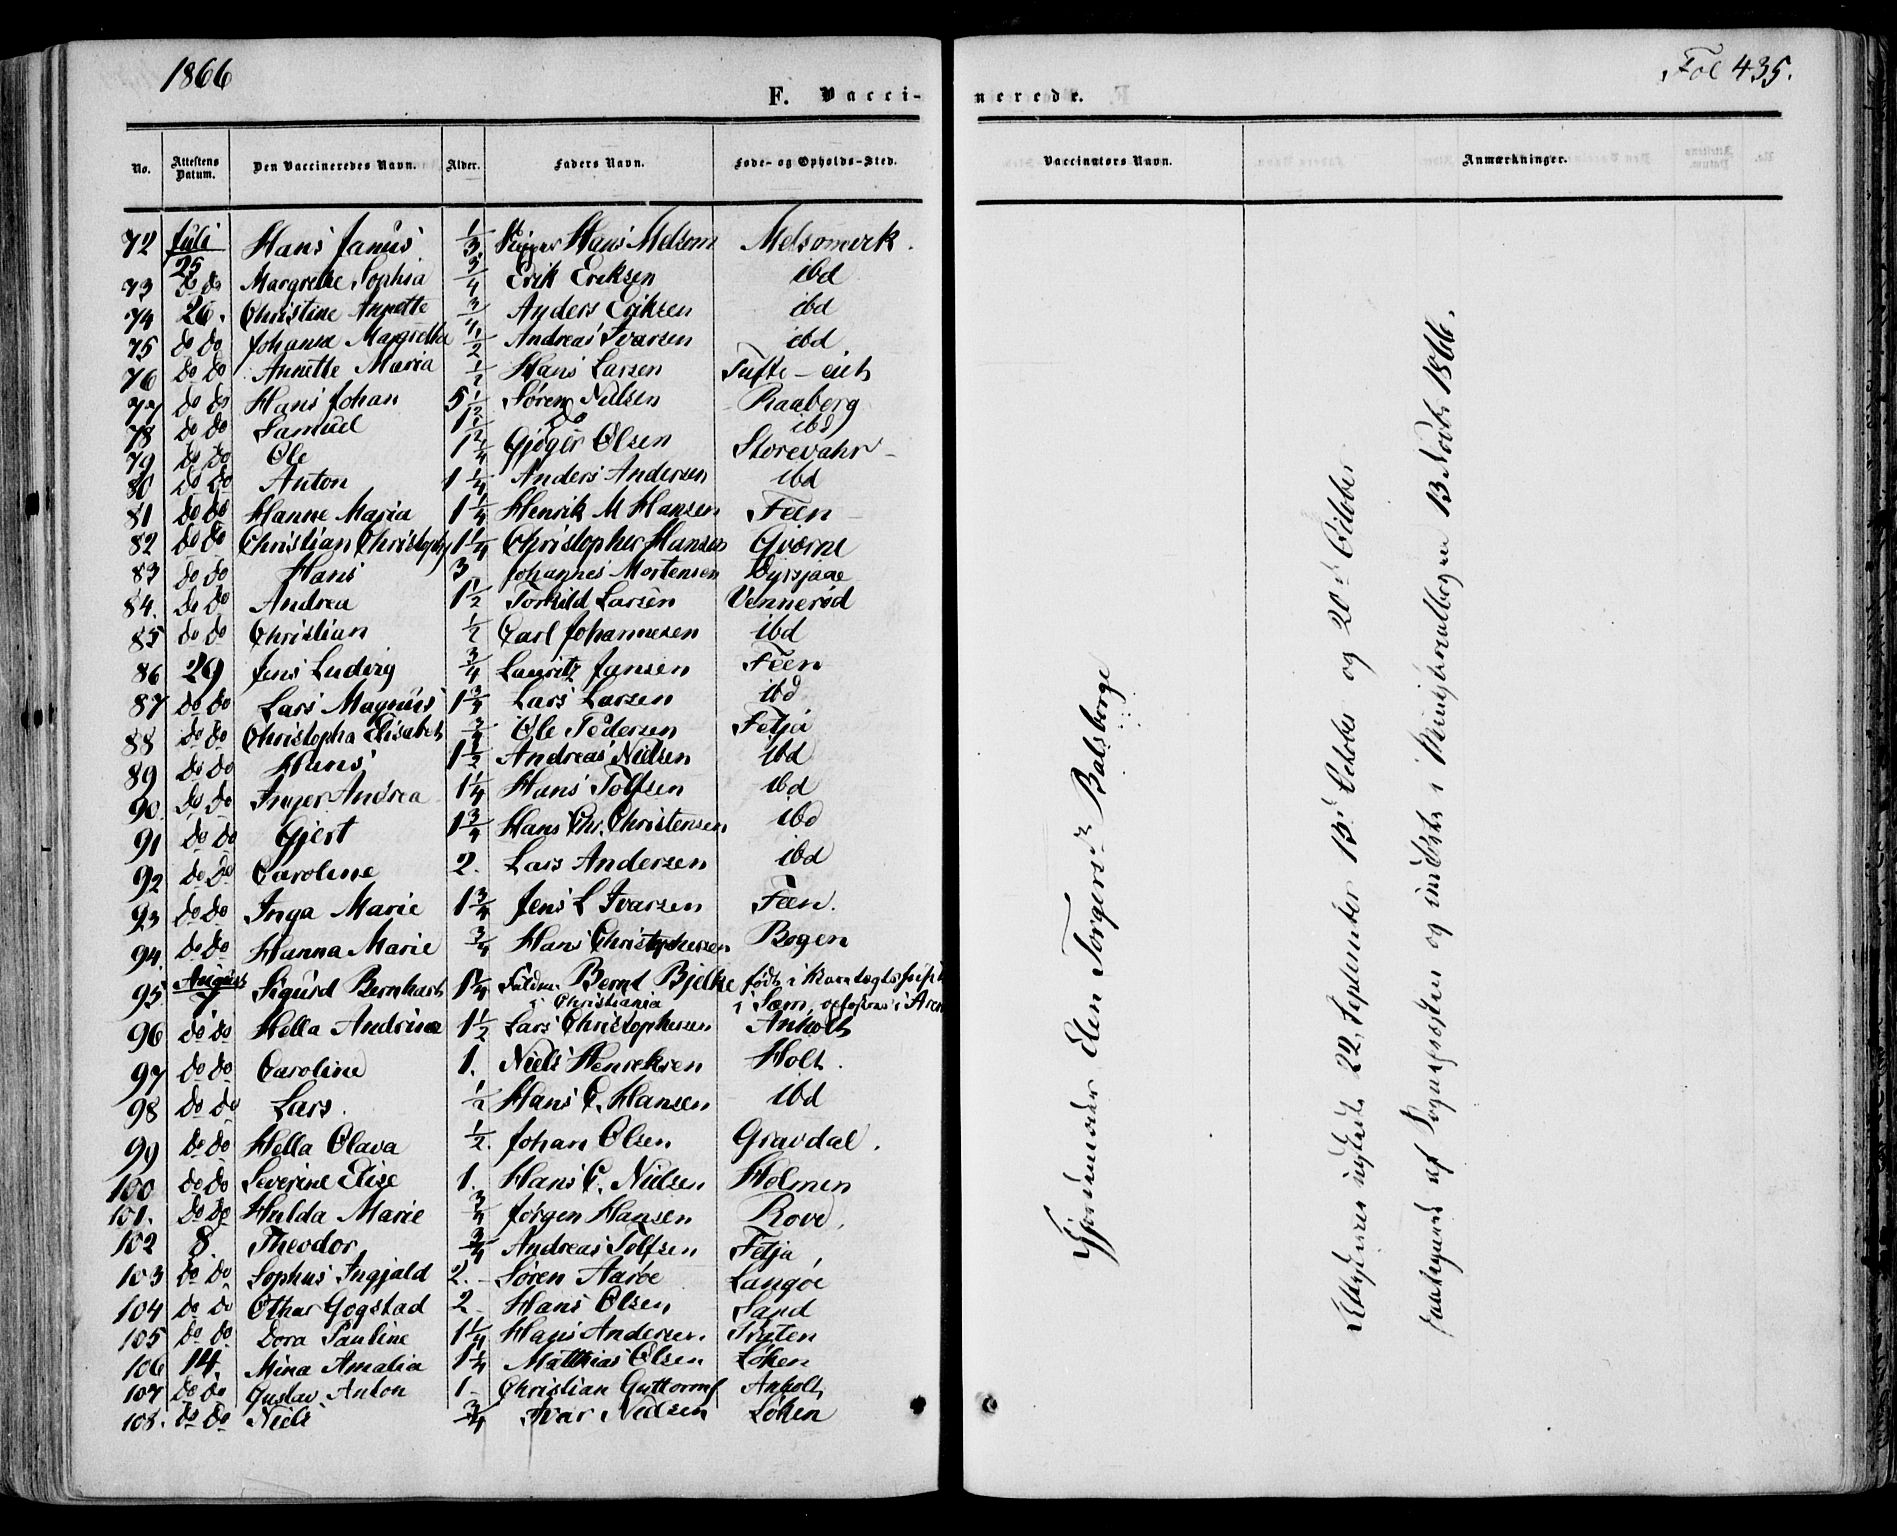 1866
Fol 435.
F. Vaccinerede.
No. Attestens Datum. Den Vaccineredes Navn. Alder. Faders Navn. Føde- og Opholds-Sted. Vaccinators Navn. Anmærkninger.
72 Juli 25 Hans Janus 1/3 Hans Melsom Melsomvik.
73 do do Margrethe Sophia 3/4 Erik Eriksen ibd
74 26. Christine Annette 3/4 Anders Eriksen ibd
75 do do Johanne Margretha 1/2 Andreas Ivarsen ibd
76 do do Annette Maria 1/2 Hans Larsen Tufte-eie
77 do do Hans Johan 5 1/2 Søren Nilsen Raaberg
78 do do Samuel 1 1/2 do ibd
79 do do Ole 1 1/4 Gjøger Olsen Storevahr
80 do do Anton 1 1/4 Anders Andersen ibd
81 do do Hanne Maria 1 1/4 Henrik M Hansen Feen
82 do do Christian Christoph 1 1/4 Christopher Hansen Qværne
83 do do Hans 3 Johannes Mortensen Dyrsjaae
84. do do Andrea 1 1/2 Torkild Larsen Vennerød
85 do do Christian 1/2 Carl Johannesen ibd
86 29 Jens Ludvig 3/4 Lauritz Jansen Feen
87 do do Lars Magnus 1 3/4 Lars Larsen ibd
88 do do Christopha Elisabeth 3/4 Ole Pedersen Fetja
89 do do Hans 1 1/2 Andreas Nilsen ibd
90. do do Inger Andrea 1 1/4 Hans Tolfsen ibd
91 do do Gjert 1 3/4 Hans Chr. Christensen ibd
92 do do Caroline 2. Lars Andersen ibd
93 do do Inga Marie 1 3/4 Jens L Ivarsen Feen.
94. do do Hanna Marie 3/4 Hans Christophersen Bogen
95 August 7 Sigurd Bernhard 1 1/4 Bernt Bjelke født i
i Christiania i Sæm, opfostres i Aren
96 do do Hella Andrina 1 1/2 Lars Christophersen Anholt
97 do do Caroline 1. Niels Henriksen Holt.
98 do do Lars. 1/2 Hans C. Hansen ibd
99 do do Hella Olava 1/2. Johan Olsen Gravdal.
100 do do Severine Elise 1. Hans C. Nilsen Holmen
101. do do Hulda Marie 3/4 Jørgen Hansen Rove.
102 8. Theodor 3/4 Andreas Tolfsen Fetja
103 do do Sophus Ingjald 2. Søren Aarøe Langøe
104 do do Othar Gogstad 2 Hans Olsen Sand
105 do do Dora Pauline 1 1/4 Hans Andersen Truten
106 14. Mina Amalia 1 1/4 Matthias Olsen Løken
107 do do Gustav Anton 1 Christian Guttormf Anholt
108. do do Niels 3/4 Ivar Nilsen Løken
Gjordemoder Elen Torgersd. Balsberge
22 September 13 Octobr og 20 October
af Sogne og i 13 Novbr 1866.